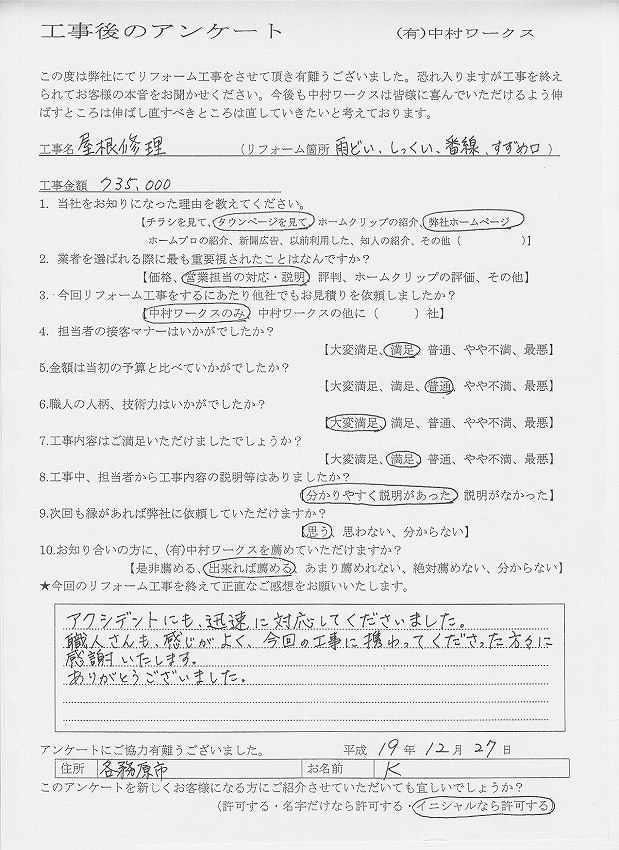 工事後のアンケート (有)中村ワークス
この度は弊社にてリフォーム工事をさせて頂き有難うございました。恐れ入りますが工事を終え
られてお客様の本音をお聞かせください。今後も中村ワークスは皆様に喜んでいただけるよう伸
ばすところは伸ばし直すべきところは直していきたいと考えております。
工事名 屋根修理 (リフォーム箇所 雨どい、しっくい、番線、すずめ口 )
工事金額 735,000
1. 当社をお知りになった理由を教えてください。
【チラシを見て、タウンページを見て、ホームクリップの紹介、弊社ホームページ
ホームプロの紹介、新聞広告、以前利用した、知人の紹介、その他( )】
2. 業者を選ばれる際に最も重要視されたことはなんですか?
【価格、営業担当の対応・説明、評判、ホームクリップの評価、その他】
3. 今回リフォーム工事をするにあたり他社でもお見積りを依頼しましたか?
【中村ワークスのみ、中村ワークスの他に( )社】
4. 担当者の接客マナーはいかがでしたか?
【大変満足、満足、普通、やや不満、最悪】
5.金額は当初の予算と比べていかがでしたか?
【大変満足、満足、普通、やや不満、最悪】
6.職人の人柄、技術力はいかがでしたか?
【大変満足、満足、普通、やや不満、最悪】
7.工事内容はご満足いただけましたでしょうか?
【大変満足、満足、普通、やや不満、最悪】
8.工事中、担当者から工事内容の説明等はありましたか?
【分かりやすく説明があった、説明がなかった】
9.次回も縁があれば弊社に依頼していただけますか?
【思う、思わない、分からない】
10.お知り合いの方に、(有)中村ワークスを薦めていただけますか?
【是非薦める、出来れば薦める、あまり薦めれない、絶対薦めない、分からない】
★今回のリフォーム工事を終えて正直なご感想をお願いいたします。
アクシデントにも、迅速に対応してくださいました。
職人さんも、感じがよく、今回の工事に携わってくださった方々に
感謝いたします。
ありがとうございました。
アンケートにご協力有難うございました。 平成 19 年 12 月 27 日
住所 各務原市 お名前 K
このアンケートを新しくお客様になる方にご紹介させていただいても宜しいでしょうか?
(許可する・名字だけなら許可する・イニシャルなら許可する)